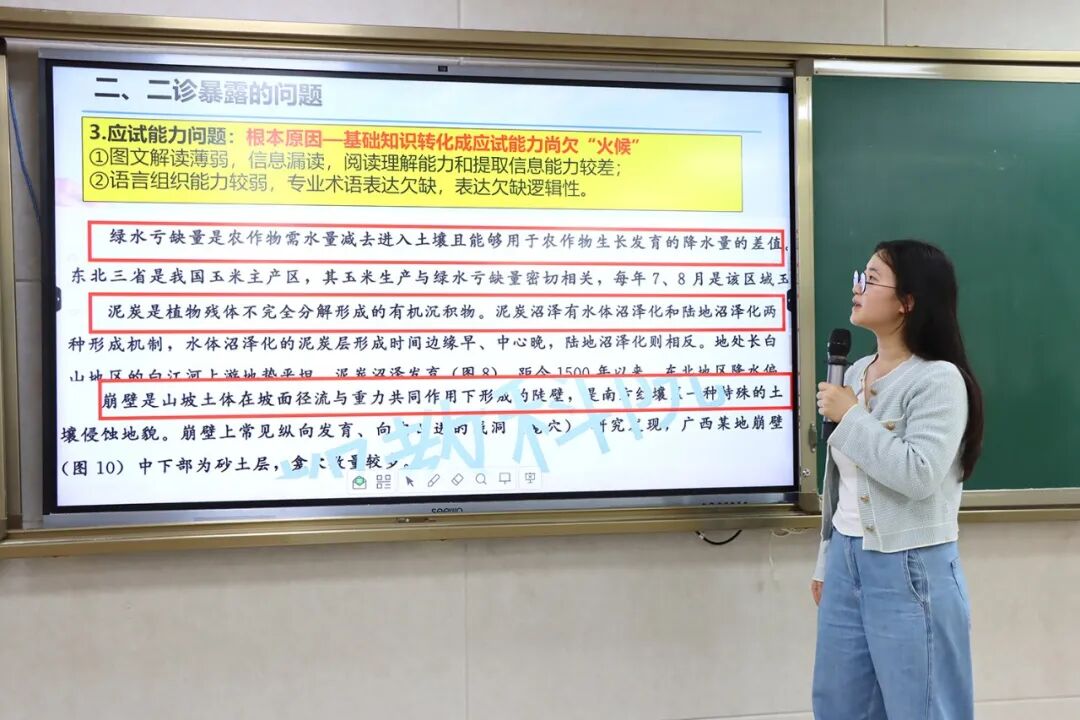 二、二诊暴露的问题
3.应试能力问题：根本原因—基础知识转化成应试能力尚欠“火候”
①图文解读薄弱，信息漏读，阅读理解能力和提取信息能力较差；
②语言组织能力较弱，专业术语表达欠缺，表达欠缺逻辑性。
绿水亏缺量是农作物需水量减去进入土壤且能够用于农作物生长发育的降水量的差值。
东北三省是我国玉米主产区，其玉米生产与绿水亏缺量密切相关，每年7、8月是该区域玉
泥炭是植物残体不完全分解形成的有机沉积物。泥炭沼泽有水体沼泽化和陆地沼泽化两
种形成机制，水体沼泽化的泥炭层形成时间边缘早、中心晚，陆地沼泽化则相反。地处长白
山地区的白江河上游地势平坦，泥炭沼泽发育（图8）。距今1500年以来，东北地区降水偏
崩壁是山坡土体在坡面径流与重力共同作用下形成的陡壁，是南方红壤区一种特殊的土
壤侵蚀地貌。崩壁上常见纵向发育、向 进的 洞 穴） 研究发现，广西某地崩壁
（图10）中下部为砂土层，龛 数量较多。
教科院
seewo